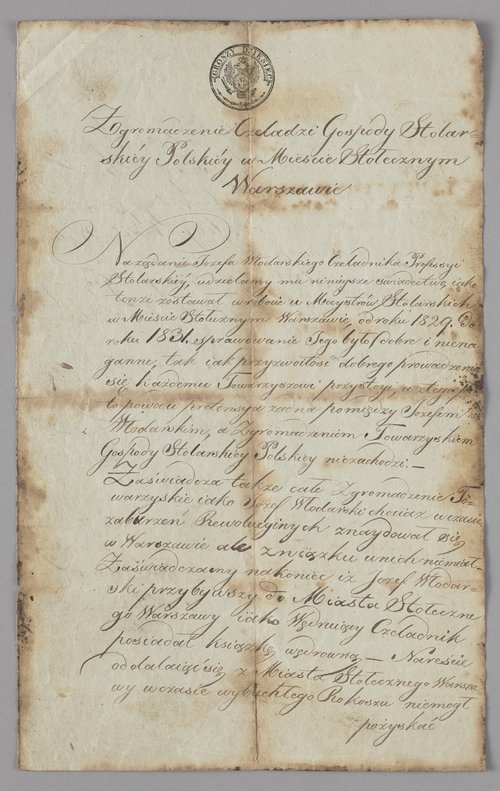 GROSZY DZIESIĘĆ
Zgromadzenie Czeladzi Gospody Stolar=
skiéy Polskiéy w Mieście Stołecznym
Warszawie
Na żądanie Józefa Włodarskiego Czeladnika Professyi
Stolarskiéy, udzielamy mu ninieysze świadectwo, iako
tenże zostawał w robocie u Maystrów Stolarskich
w Mieście Stołecznym Warszawie, od roku 1829. Do
roku 1831. sprawowanie Jego było dobre i niena
ganne, tak iak przyzwoitość dobrego prowadzenia
się każdemu Towarzyszowi przystoi a z tego
to powodu pretensya żadna pomiędzy Józefem
Włodarskim, a Zgromadzeniem Towarzyskiem
Gospody Stolarskiéy Polskiéy niezachodzi. —
Zaświadcza także całe Zgromadzenie To=
warzyskie iako Józef Włodarski chociaż w czasie
zaburzeń Rewolucyinych znaydował się
w Warszawie ale związku w nich niemiał.
Zaświadczamy nakoniec iż Józef Włodar=
ski przybywszy do Miasta Stołeczne
go Warszawy iako Wędruiący Czeladnik
posiadał książkę wędrowną — Nareście
oddalaiąc się z Miasta Stołecznego Warsza=
wy w czasie wybuchłego Rokoszu niemógł
pożyskać